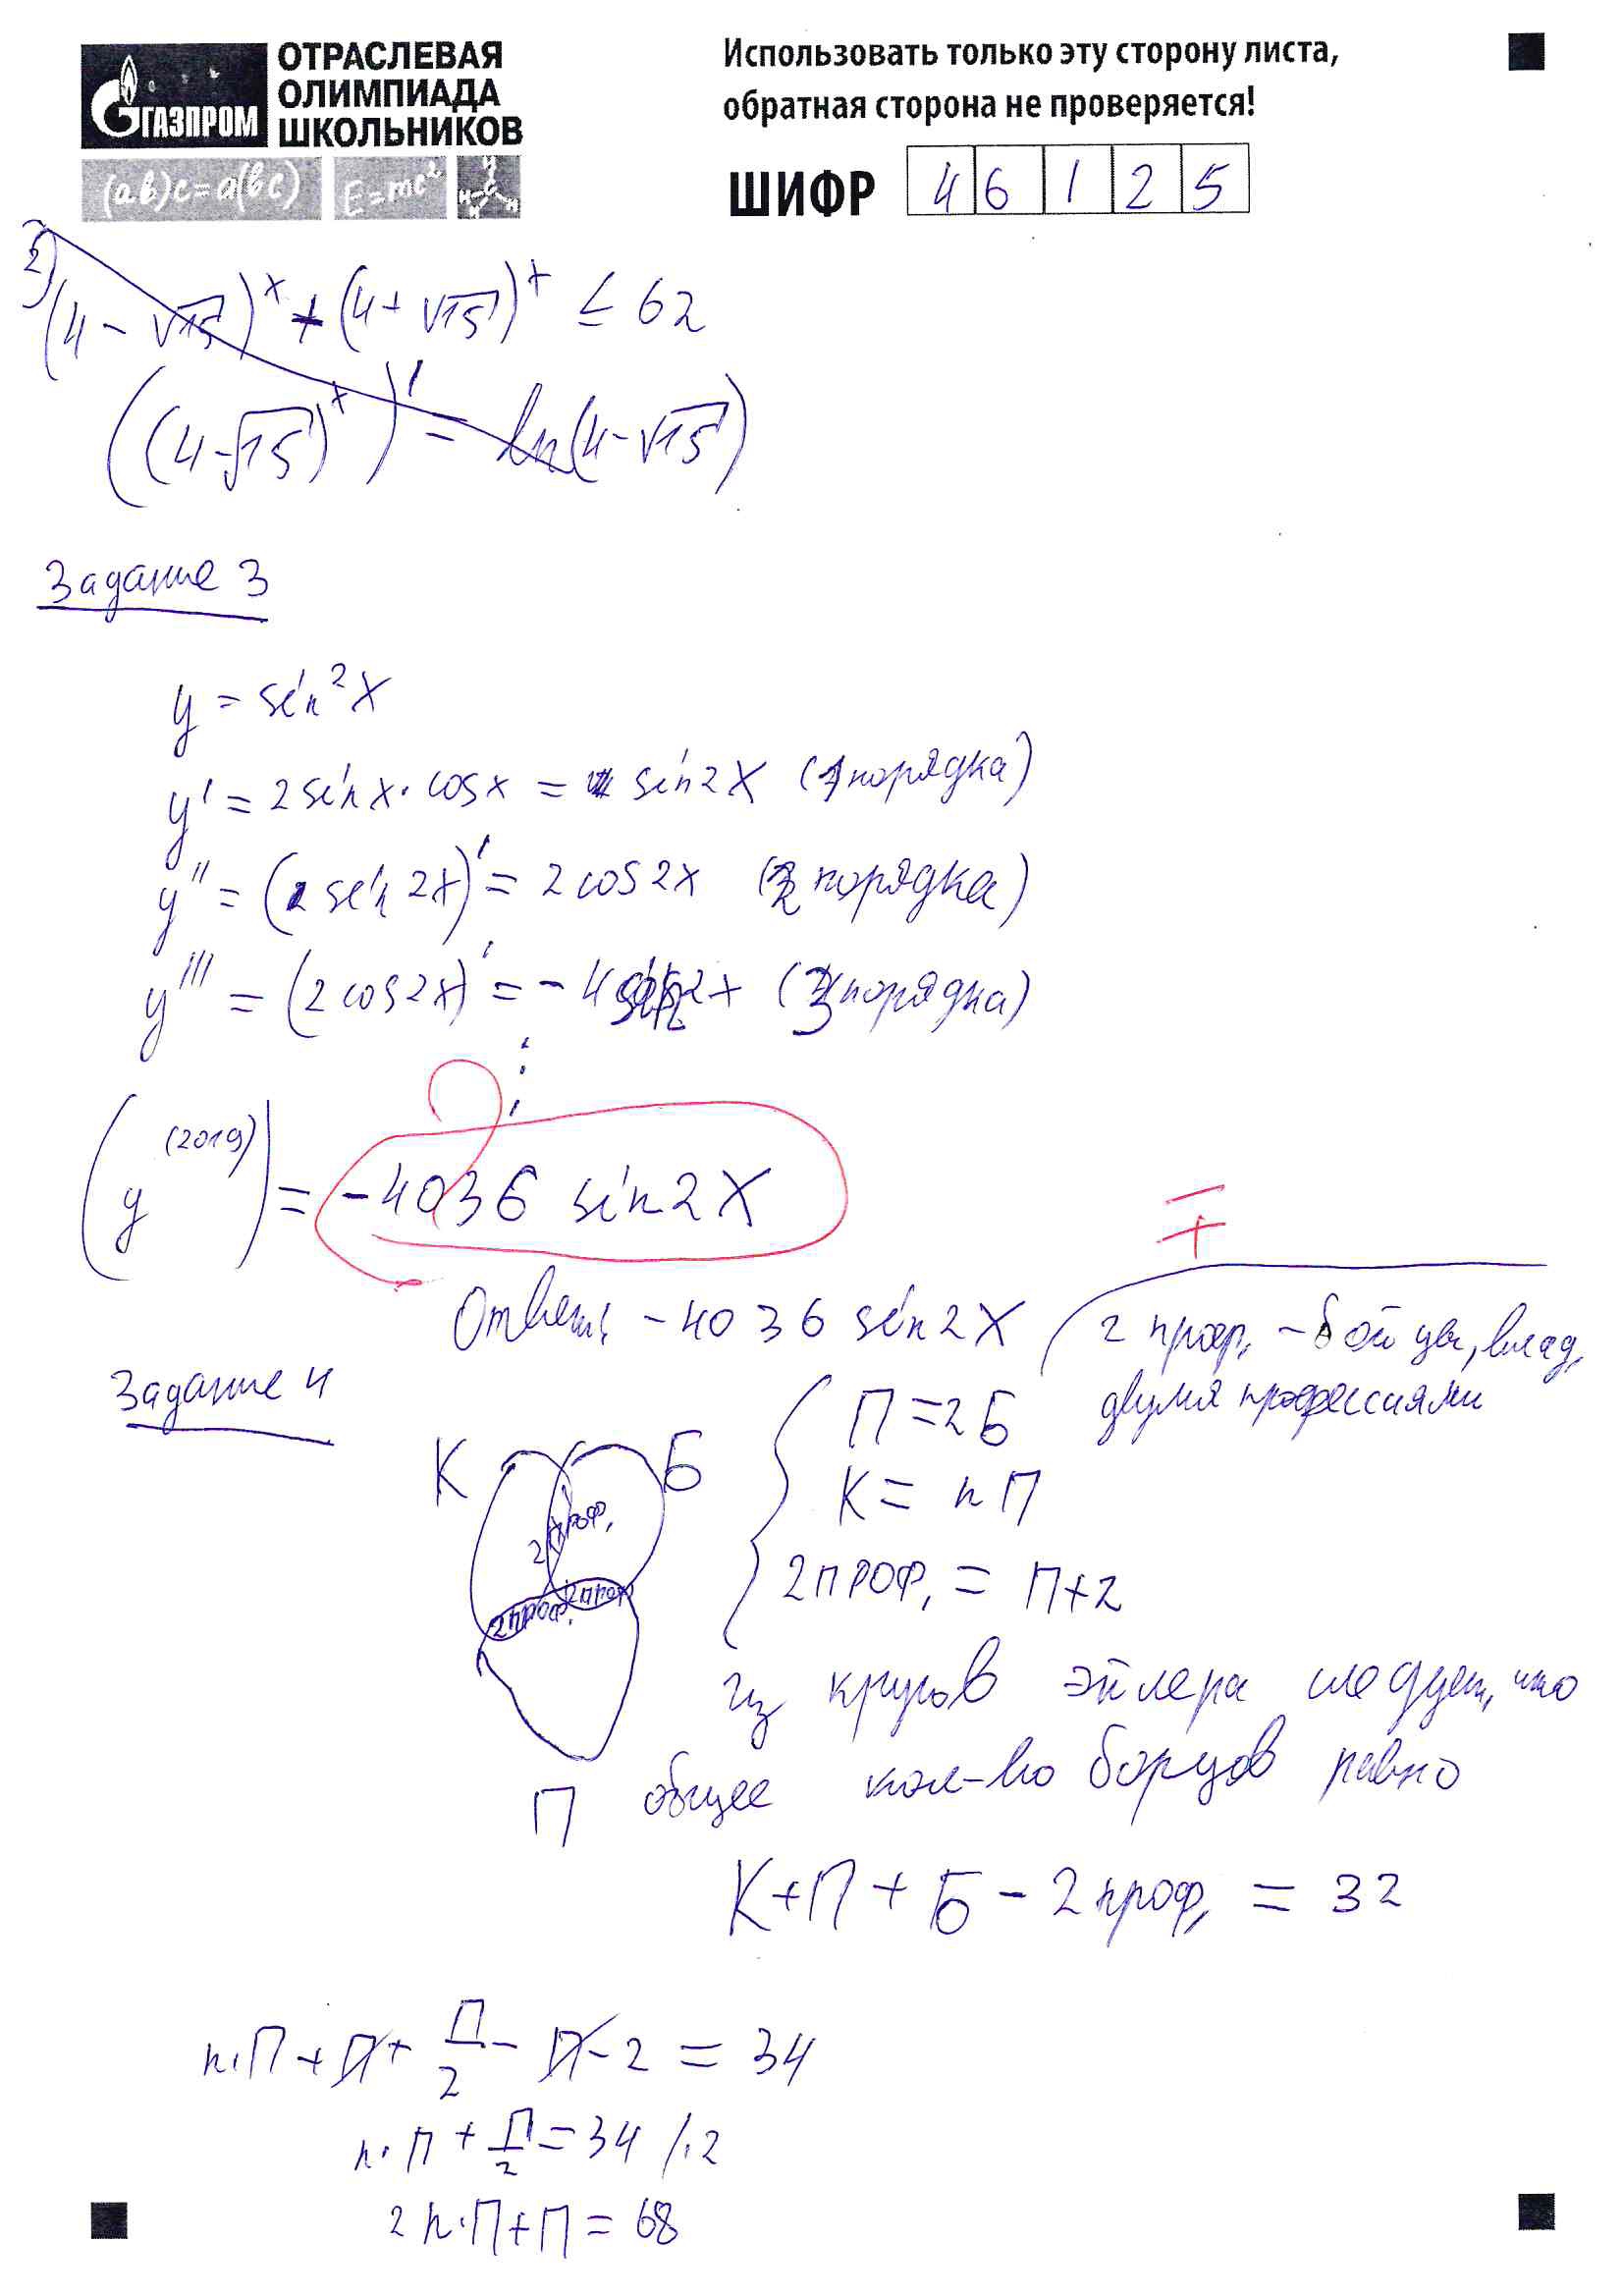 ГАЗПРОМ
ОТРАСЛЕВАЯ
ОЛИМПИАДА
ШКОЛЬНИКОВ
(ab)c=a(bc) E=mc²
Использовать только эту сторону листа,
обратная сторона не проверяется!
ШИФР 4 6 1 2 5
2)
(4-√15)^x + (4+√15)^x ≤ 62
((4-√15)^x)' = ln(4-√15)
Задание 3
y = sin²x
y' = 2sinx·cosx = sin2x (1 порядка)
y'' = (sin2x)' = 2cos2x (2 порядка)
y''' = (2cos2x)' = -4sin2x (3 порядка)
⋮
(y^(2019)) = -4036 sin2x
Ответ: -4036 sin2x
2 проф. - бойцы, влад.
двумя профессиями
Задание 4
К Б
2 проф.
2 проф. 2 проф
П
П = 2Б
К = nП
2 проф. = П+2
Из кругов Эйлера следует, что
общее кол-во борцов равно
К+П+Б-2 проф. = 32
n·П + П + П/2 - П - 2 = 34
n·П + П/2 = 34 /·2
2n·П+П = 68